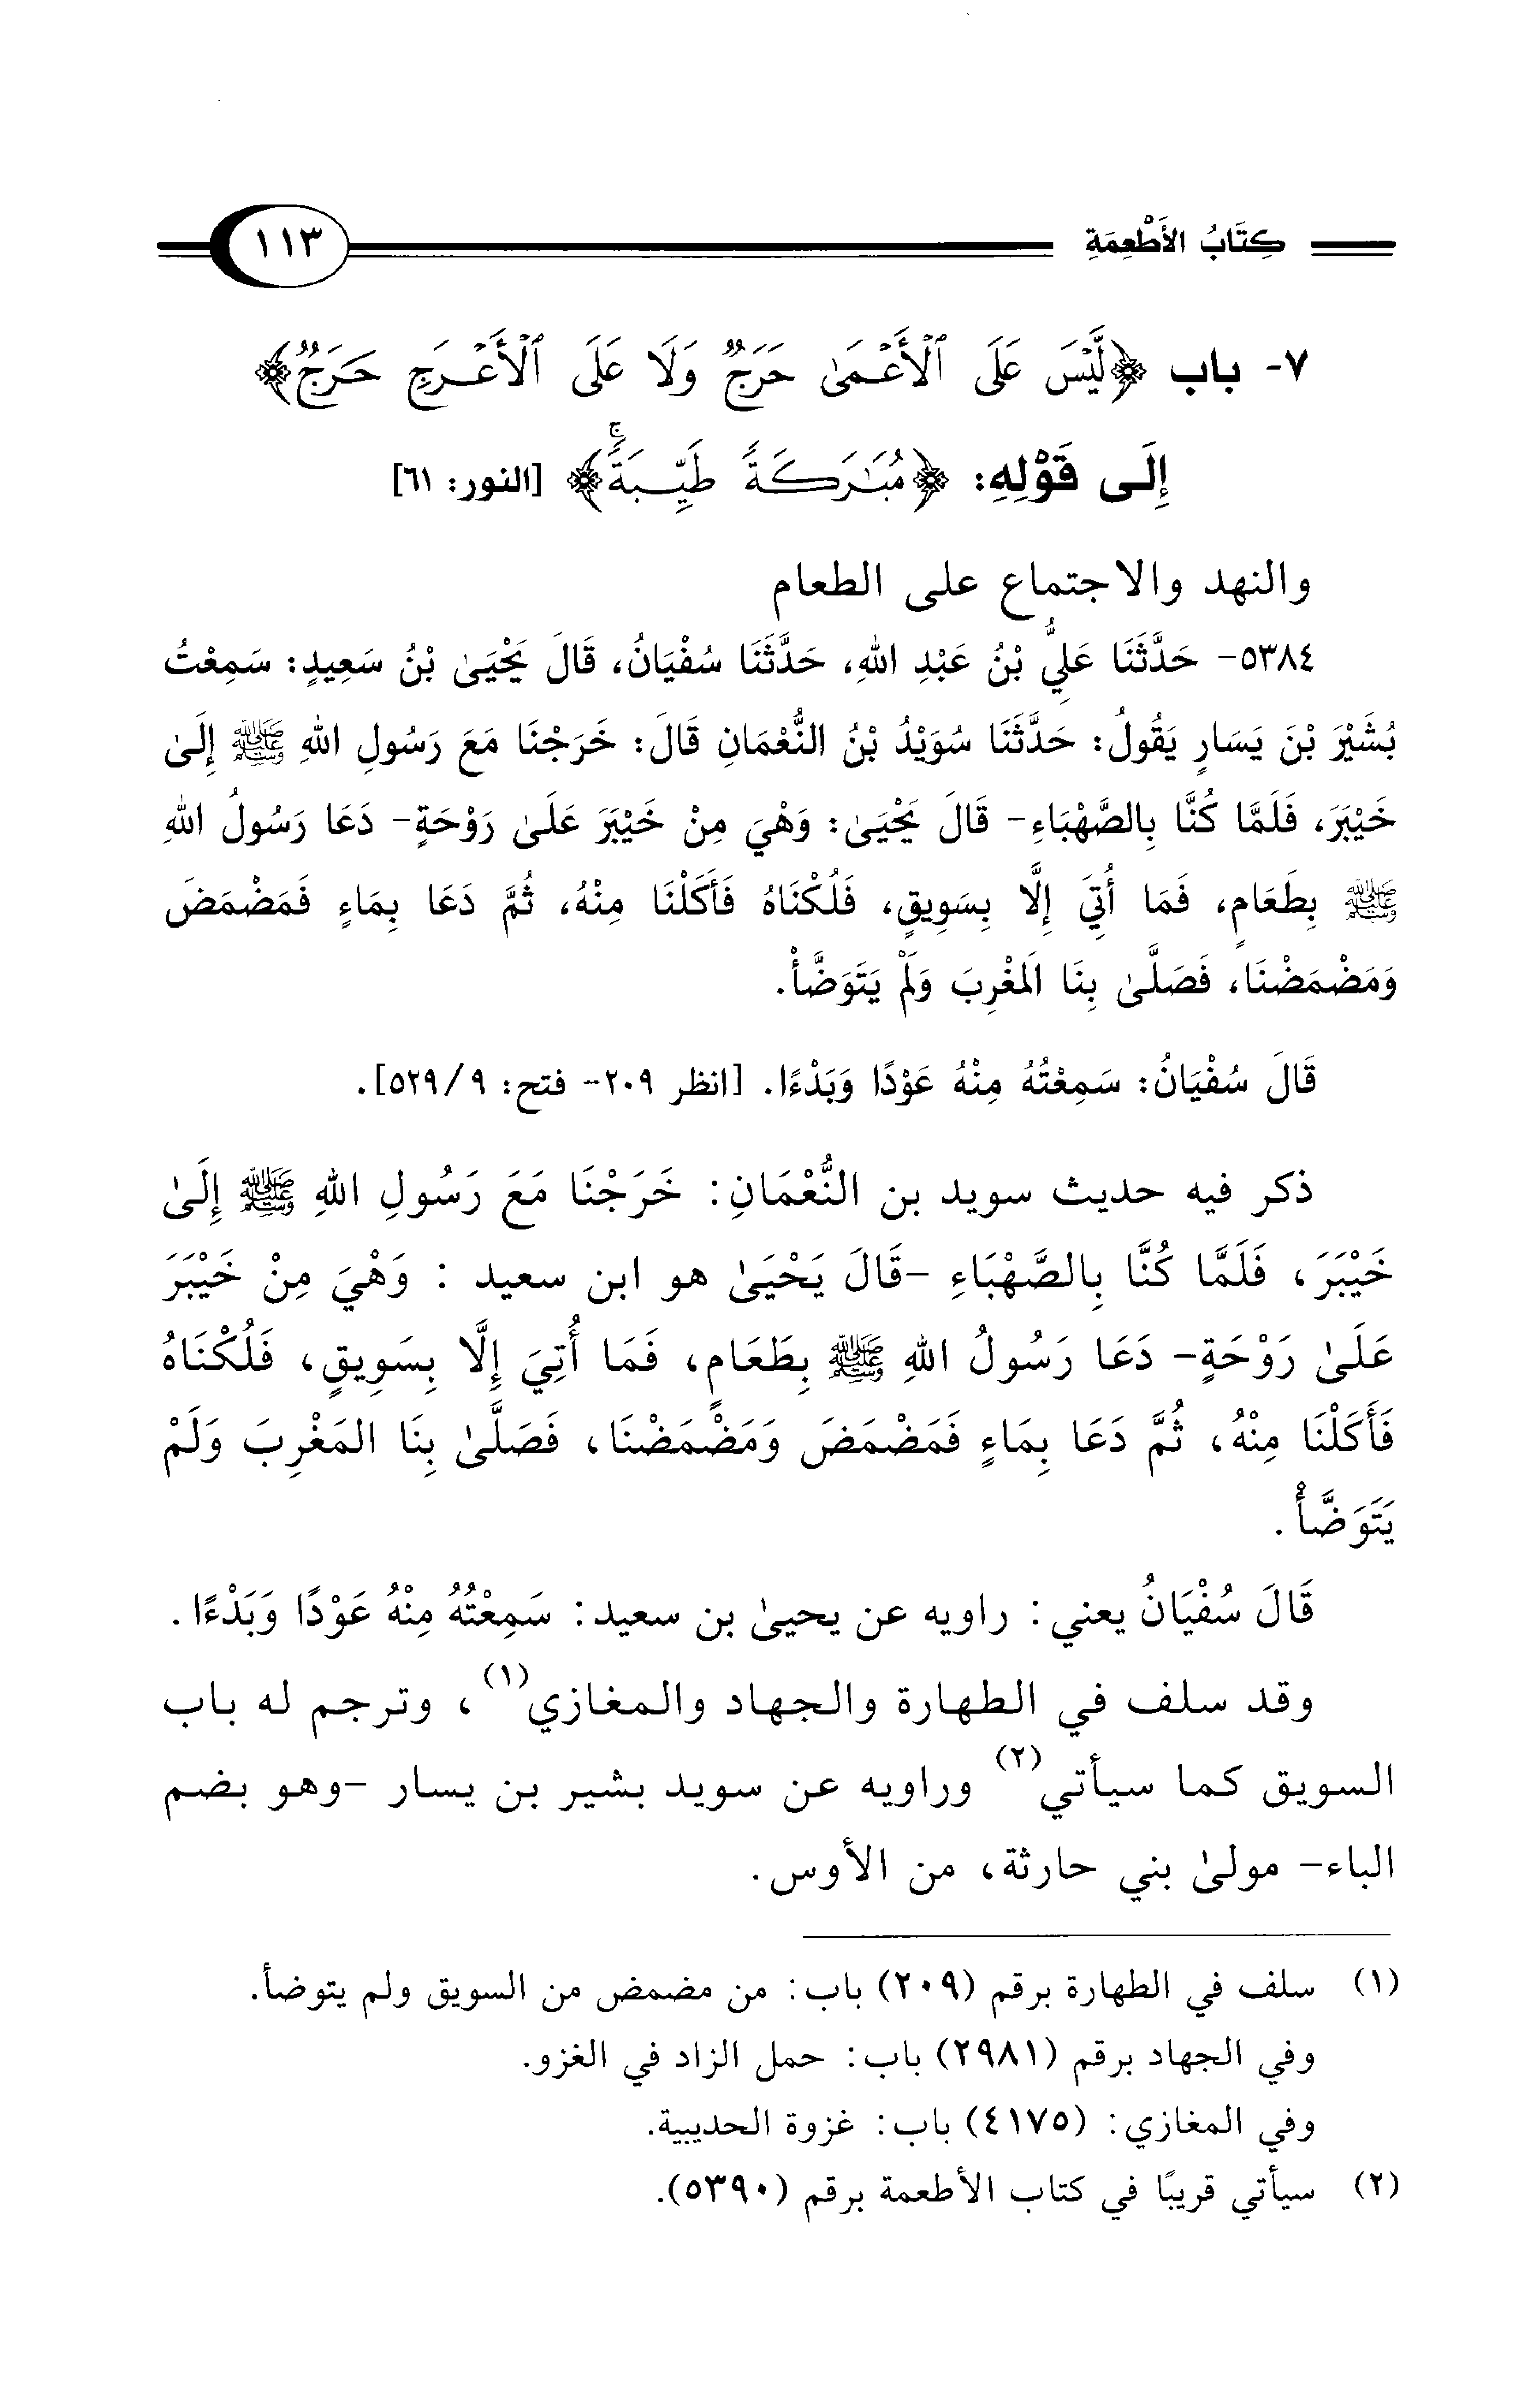 كِتَابُ الأَطْعِمَةِ ١١٣
٧- باب ﴿لَّيْسَ عَلَى ٱلْأَعْمَىٰ حَرَجٌ وَلَا عَلَى ٱلْأَعْرَجِ حَرَجٌ﴾
إِلَى قَوْلِهِ: ﴿مُبَٰرَكَةً طَيِّبَةًۚ﴾ [النور: ٦١]
والنهد والاجتماع على الطعام
٥٣٨٤- حَدَّثَنَا عَلِيُّ بْنُ عَبْدِ اللهِ، حَدَّثَنَا سُفْيَانُ، قَالَ يَحْيَىٰ بْنُ سَعِيدٍ: سَمِعْتُ
بُشَيْرَ بْنَ يَسَارٍ يَقُولُ: حَدَّثَنَا سُوَيْدُ بْنُ النُّعْمَانِ قَالَ: خَرَجْنَا مَعَ رَسُولِ اللهِ ﷺ إِلَىٰ
خَيْبَرَ، فَلَمَّا كُنَّا بِالصَّهْبَاءِ- قَالَ يَحْيَىٰ: وَهْيَ مِنْ خَيْبَرَ عَلَىٰ رَوْحَةٍ- دَعَا رَسُولُ اللهِ
ﷺ بِطَعَامٍ، فَمَا أُتِيَ إِلَّا بِسَوِيقٍ، فَلُكْنَاهُ فَأَكَلْنَا مِنْهُ، ثُمَّ دَعَا بِمَاءٍ فَمَضْمَضَ
وَمَضْمَضْنَا، فَصَلَّىٰ بِنَا المَغْرِبَ وَلَمْ يَتَوَضَّأْ.
قَالَ سُفْيَانُ: سَمِعْتُهُ مِنْهُ عَوْدًا وَبَدْءًا. [انظر ٢٠٩- فتح: ٩/ ٥٢٩].
ذكر فيه حديث سويد بن النُّعْمَانِ: خَرَجْنَا مَعَ رَسُولِ اللهِ ﷺ إِلَىٰ
خَيْبَرَ، فَلَمَّا كُنَّا بِالصَّهْبَاءِ -قَالَ يَحْيَىٰ هو ابن سعيد : وَهْيَ مِنْ خَيْبَرَ
عَلَىٰ رَوْحَةٍ- دَعَا رَسُولُ اللهِ ﷺ بِطَعَامٍ، فَمَا أُتِيَ إِلَّا بِسَوِيقٍ، فَلُكْنَاهُ
فَأَكَلْنَا مِنْهُ، ثُمَّ دَعَا بِمَاءٍ فَمَضْمَضَ وَمَضْمَضْنَا، فَصَلَّىٰ بِنَا المَغْرِبَ وَلَمْ
يَتَوَضَّأْ.
قَالَ سُفْيَانُ يعني: راويه عن يحيىٰ بن سعيد: سَمِعْتُهُ مِنْهُ عَوْدًا وَبَدْءًا.
وقد سلف في الطهارة والجهاد والمغازي(١)، وترجم له باب
السويق كما سيأتي(٢) وراويه عن سويد بشير بن يسار -وهو بضم
الباء- مولىٰ بني حارثة، من الأوس.
(١) سلف في الطهارة برقم (٢٠٩) باب: من مضمض من السويق ولم يتوضأ.
وفي الجهاد برقم (٢٩٨١) باب: حمل الزاد في الغزو.
وفي المغازي: (٤١٧٥) باب: غزوة الحديبية.
(٢) سيأتي قريبًا في كتاب الأطعمة برقم (٥٣٩٠).